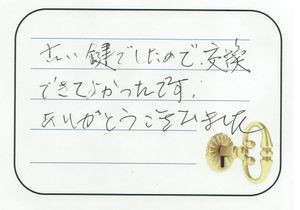 古い鍵でしたので、交換
できてよかったです。
ありがとうございました